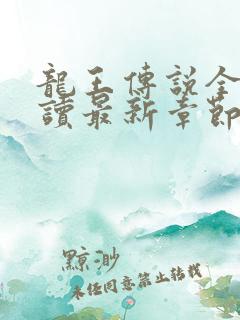 龍王傳説全
讀最新章節
黥渺
未经同意禁止转载